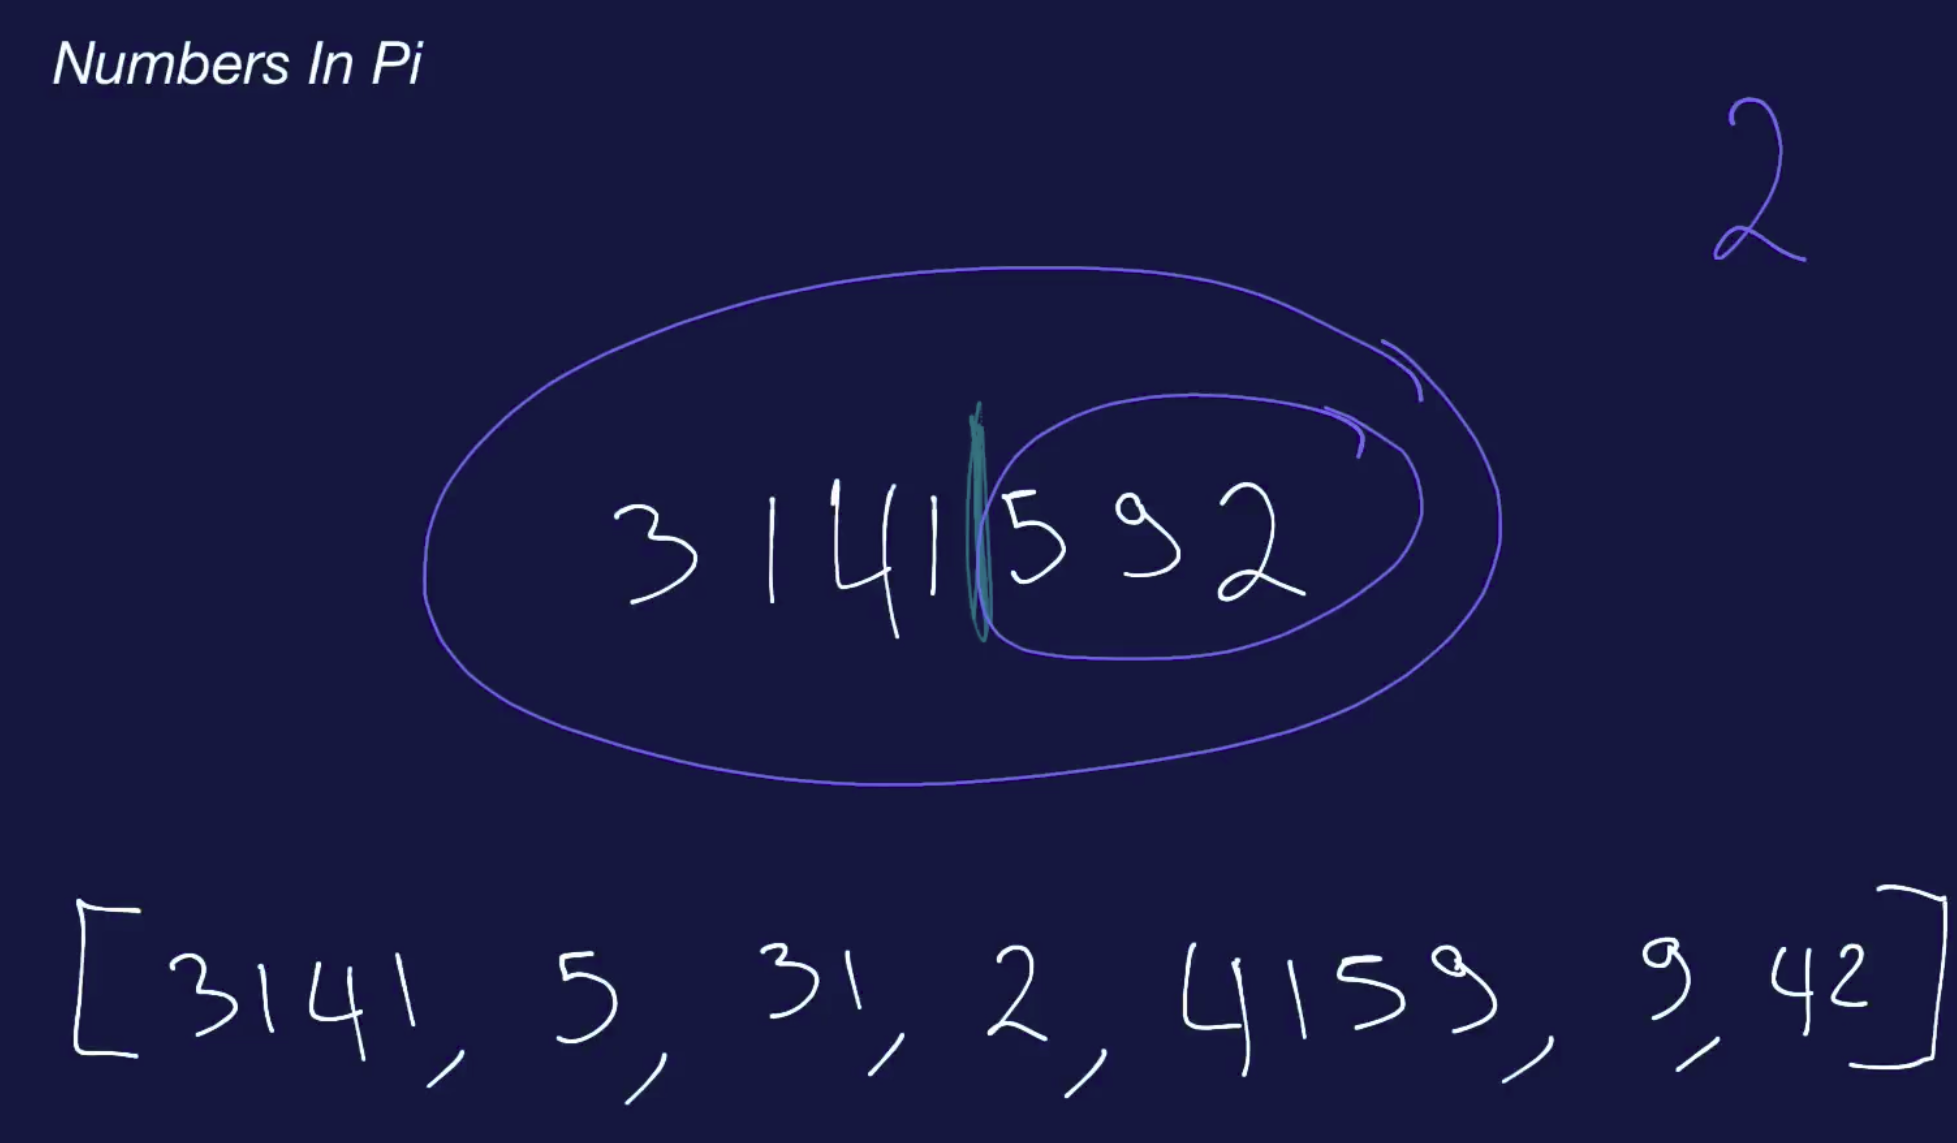 Numbers In Pi
2
3141592
[3141, 5, 31, 2, 4159, 9, 42]